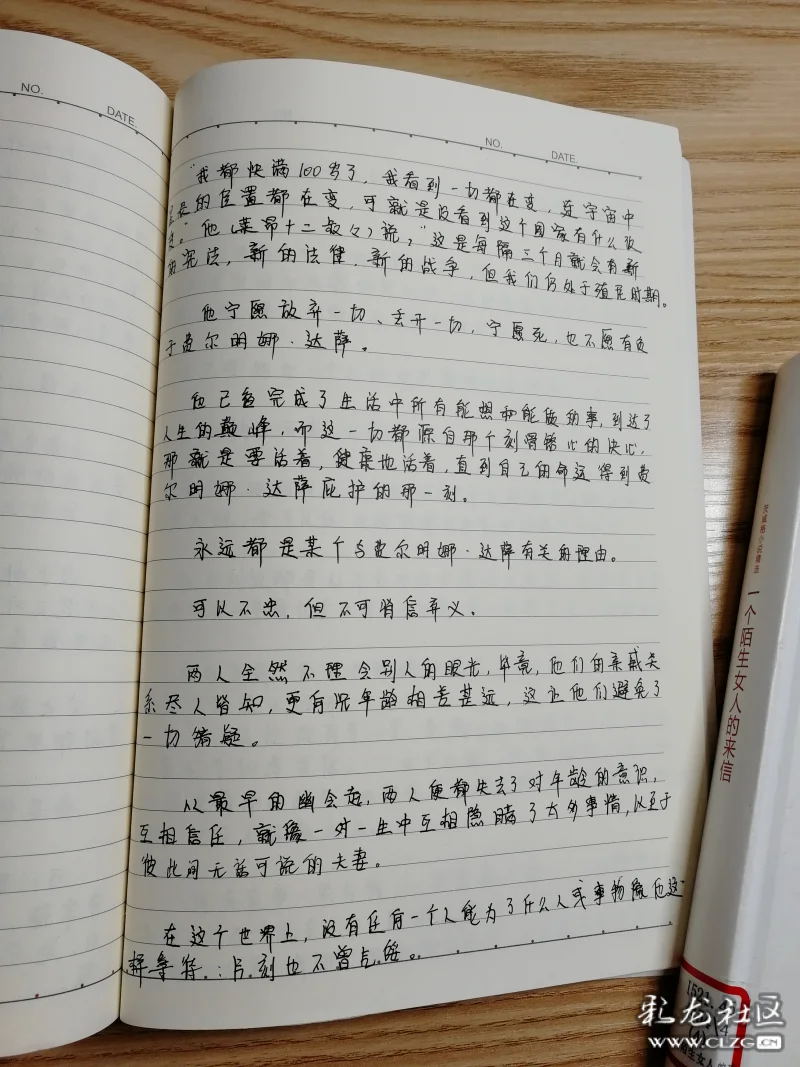 NO.
DATE.
NO.
DATE.
"我都快满100岁了,我看到一切都在变,连宇宙中
星辰的位置都在变,可就是没看到这个国家有什么改
变。"他(莱昂十二叔叔)说,"这里每隔三个月就会有新
的宪法,新的法律,新的战争,但我们仍处于殖民时期。
他宁愿放弃一切、丢开一切,宁愿死,也不愿有负
于费尔明娜·达萨。
他已经完成了生活中所有能想和能做的事,到达了
人生的巅峰,而这一切都源自那个刻骨铭心的决心,
那就是要活着,健康地活着,直到自己的命运得到费
尔明娜·达萨庇护的那一刻。
永远都是某个与费尔明娜·达萨有关的理由。
可以不忠,但不可背信弃义。
两人全然不理会别人的眼光,毕竟,他们的亲戚关
系尽人皆知,更有况年龄相差甚远,这让他们避免了
一切猜疑。
从最早的幽会起,两人便都失去了对年龄的意识,
互相信任,就像一对一生中互相隐瞒了太多事情,以至于
彼此间无话可说的夫妻。
在这个世界上,没有任何一个人能为了什么人或事物像他这
样等待:片刻也不曾气馁。
茨威格小说精选
一个陌生女人的来信
1521
彩龙社区
www.CLZG.CN